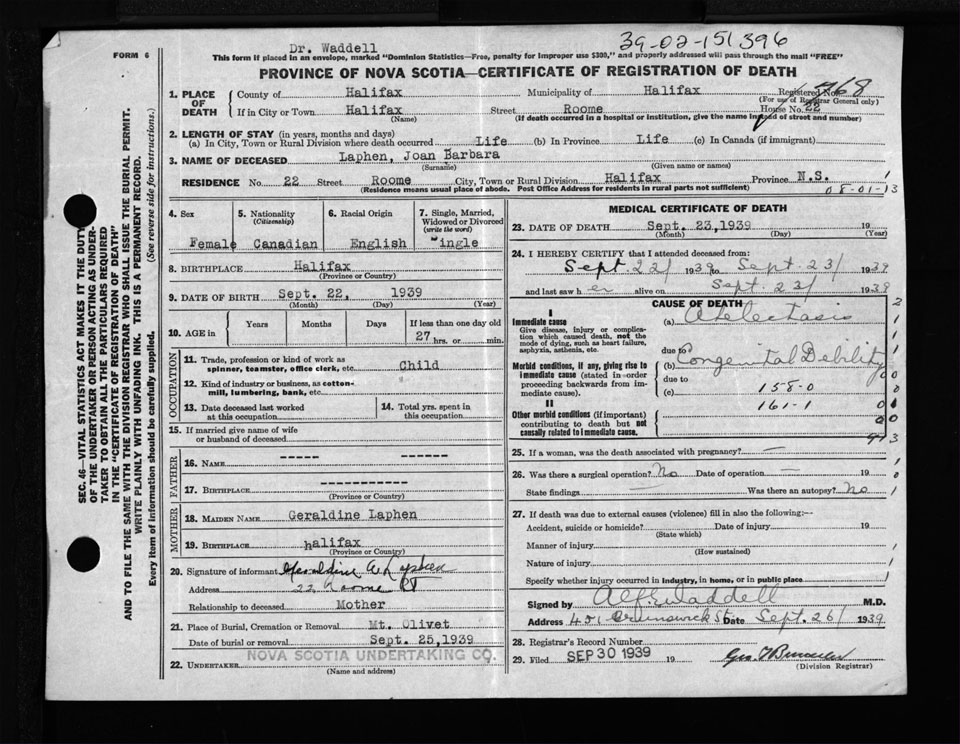 39-02-151396
Dr. Waddell
FORM 6
This form if placed in an envelope, marked "Dominion Statistics—Free, penalty for improper use $300," and properly addressed will pass through the mail "FREE"
PROVINCE OF NOVA SCOTIA—CERTIFICATE OF REGISTRATION OF DEATH
1. PLACE OF DEATH
County of Halifax Municipality of Halifax Registered No. 768
(For use of Registrar General only)
If in City or Town Halifax Street Roome House No. 22
(Name) (If death occurred in a hospital or institution, give the name instead of street and number)
2. LENGTH OF STAY (in years, months and days)
(a) In City, Town or Rural Division where death occurred Life (b) In Province Life (c) In Canada (if immigrant)
3. NAME OF DECEASED Laphen, Joan Barbara
(Surname) (Given name or names)
RESIDENCE No. 22 Street Roome City, Town or Rural Division Halifax Province N.S.
(Residence means usual place of abode. Post Office Address for residents in rural parts not sufficient)
08-01-13
4. Sex Female
5. Nationality (Citizenship) Canadian
6. Racial Origin English
7. Single, Married, Widowed or Divorced (write the word) ingle
8. BIRTHPLACE Halifax
(Province or Country)
9. DATE OF BIRTH Sept. 22, 1939
(Month) (Day) (Year)
10. AGE in Years Months Days If less than one day old
27 hrs. or min.
OCCUPATION
11. Trade, profession or kind of work as spinner, teamster, office clerk, etc. Child
12. Kind of industry or business, as cotton-mill, lumbering, bank, etc.
13. Date deceased last worked at this occupation
14. Total yrs. spent in this occupation
15. If married give name of wife or husband of deceased
FATHER
16. NAME ----- ------
17. BIRTHPLACE ------------
(Province or Country)
MOTHER
18. MAIDEN NAME Geraldine Laphen
19. BIRTHPLACE halifax
(Province or Country)
20. Signature of informant Geraldine A Laphen
Address 22 Roome St
Relationship to deceased Mother
21. Place of Burial, Cremation or Removal Mt. Olivet
Date of burial or removal Sept. 25,1939
22. UNDERTAKER NOVA SCOTIA UNDERTAKING CO.
(Name and address)
MEDICAL CERTIFICATE OF DEATH
23. DATE OF DEATH Sept. 23,1939
(Month) (Day) (Year)
24. I HEREBY CERTIFY that I attended deceased from:
Sept. 22/ 1939 to Sept 23/ 1939
and last saw h er alive on Sept. 23/ 1939
CAUSE OF DEATH
I
Immediate cause (a) Atelectasis
Give disease, injury or complication which caused death, not the mode of dying, such as heart failure, asphyxia, asthenia, etc.
due to
Morbid conditions, if any, giving rise to immediate cause (stated in order proceeding backwards from immediate cause).
(b) Congenital Debility
due to
(c) 158-0
II
161-1
Other morbid conditions (if important) contributing to death but not causally related to immediate cause.
25. If a woman, was the death associated with pregnancy? —
26. Was there a surgical operation? No Date of operation — 19
State findings — Was there an autopsy? No
27. If death was due to external causes (violence) fill in also the following:—
Accident, suicide or homicide? Date of injury 19
(State which)
Manner of injury
(How sustained)
Nature of injury
Specify whether injury occurred in industry, in home, or in public place
Signed by Alf E Waddell M.D.
Address 451 Brunswick St Date Sept. 26/ 1939
28. Registrar's Record Number
29. Filed SEP 30 1939 19
(Division Registrar)
SEC. 46—VITAL STATISTICS ACT MAKES IT THE DUTY
OF THE UNDERTAKER OR PERSON ACTING AS UNDERTAKER TO OBTAIN ALL THE PARTICULARS REQUIRED
IN THE "CERTIFICATE OF REGISTRATION OF DEATH"
AND TO FILE THE SAME WITH THE DIVISION REGISTRAR WHO SHALL ISSUE THE BURIAL PERMIT.
WRITE PLAINLY WITH UNFADING INK. THIS IS A PERMANENT RECORD.
Every item of information should be carefully supplied. (See reverse side for instructions.)